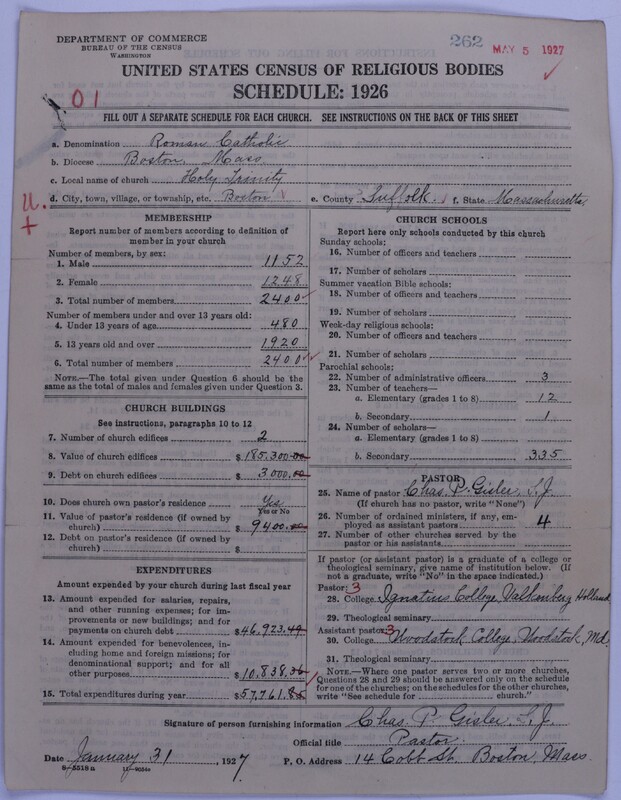 DEPARTMENT OF COMMERCE
BUREAU OF THE CENSUS
WASHINGTON
262
MAY 5 1927
UNITED STATES CENSUS OF RELIGIOUS BODIES
SCHEDULE: 1926
01
FILL OUT A SEPARATE SCHEDULE FOR EACH CHURCH. SEE INSTRUCTIONS ON THE BACK OF THIS SHEET
a. Denomination Roman Catholic
b. Diocese Boston, Mass.
c. Local name of church Holy Trinity
d. City, town, village, or township, etc. Boston e. County Suffolk f. State Massachusetts
U.
+
MEMBERSHIP
Report number of members according to definition of
member in your church
Number of members, by sex:
1. Male 1152
2. Female 1248
3. Total number of members 2400
Number of members under and over 13 years old:
4. Under 13 years of age 480
5. 13 years old and over 1920
6. Total number of members 2400
NOTE.—The total given under Question 6 should be the
same as the total of males and females given under Question 3.
CHURCH BUILDINGS
See instructions, paragraphs 10 to 12
7. Number of church edifices 2
8. Value of church edifices $185,300.00
9. Debt on church edifices $3000.00
10. Does church own pastor's residence Yes
Yes or No
11. Value of pastor's residence (if owned by
church) $9400.00
12. Debt on pastor's residence (if owned by
church) $
EXPENDITURES
Amount expended by your church during last fiscal year
13. Amount expended for salaries, repairs,
and other running expenses; for im-
provements or new buildings; and for
payments on church debt $46,923.49
14. Amount expended for benevolences, in-
cluding home and foreign missions; for
denominational support; and for all
other purposes $10,838.36
15. Total expenditures during year $57,761.85
CHURCH SCHOOLS
Report here only schools conducted by this church
Sunday schools:
16. Number of officers and teachers
17. Number of scholars
Summer vacation Bible schools:
18. Number of officers and teachers
19. Number of scholars
Week-day religious schools:
20. Number of officers and teachers
21. Number of scholars
Parochial schools:
22. Number of administrative officers 3
23. Number of teachers—
a. Elementary (grades 1 to 8) 12
b. Secondary 1
24. Number of scholars—
a. Elementary (grades 1 to 8)
b. Secondary 335
PASTOR
25. Name of pastor Chas. P. Gisler, S.J.
(If church has no pastor, write "None")
26. Number of ordained ministers, if any, em-
ployed as assistant pastors 4
27. Number of other churches served by the
pastor or his assistants
If pastor (or assistant pastor) is a graduate of a college or
theological seminary, give name of institution below. (If
not a graduate, write "No" in the space indicated.)
Pastor: 3
28. College Ignatius College, Valkenberg Holland
29. Theological seminary
Assistant pastor: 3
30. College Woodstock College, Woodstock, Md.
31. Theological seminary
NOTE.—Where one pastor serves two or more churches,
Questions 28 and 29 should be answered only on the schedule
for one of the churches; on the schedules for the other churches,
write "See schedule for church."
Signature of person furnishing information Chas. P. Gisler, S.J.
Official title Pastor
Date January 31, 1927 P. O. Address 14 Cobb St. Boston, Mass.
8-5518a